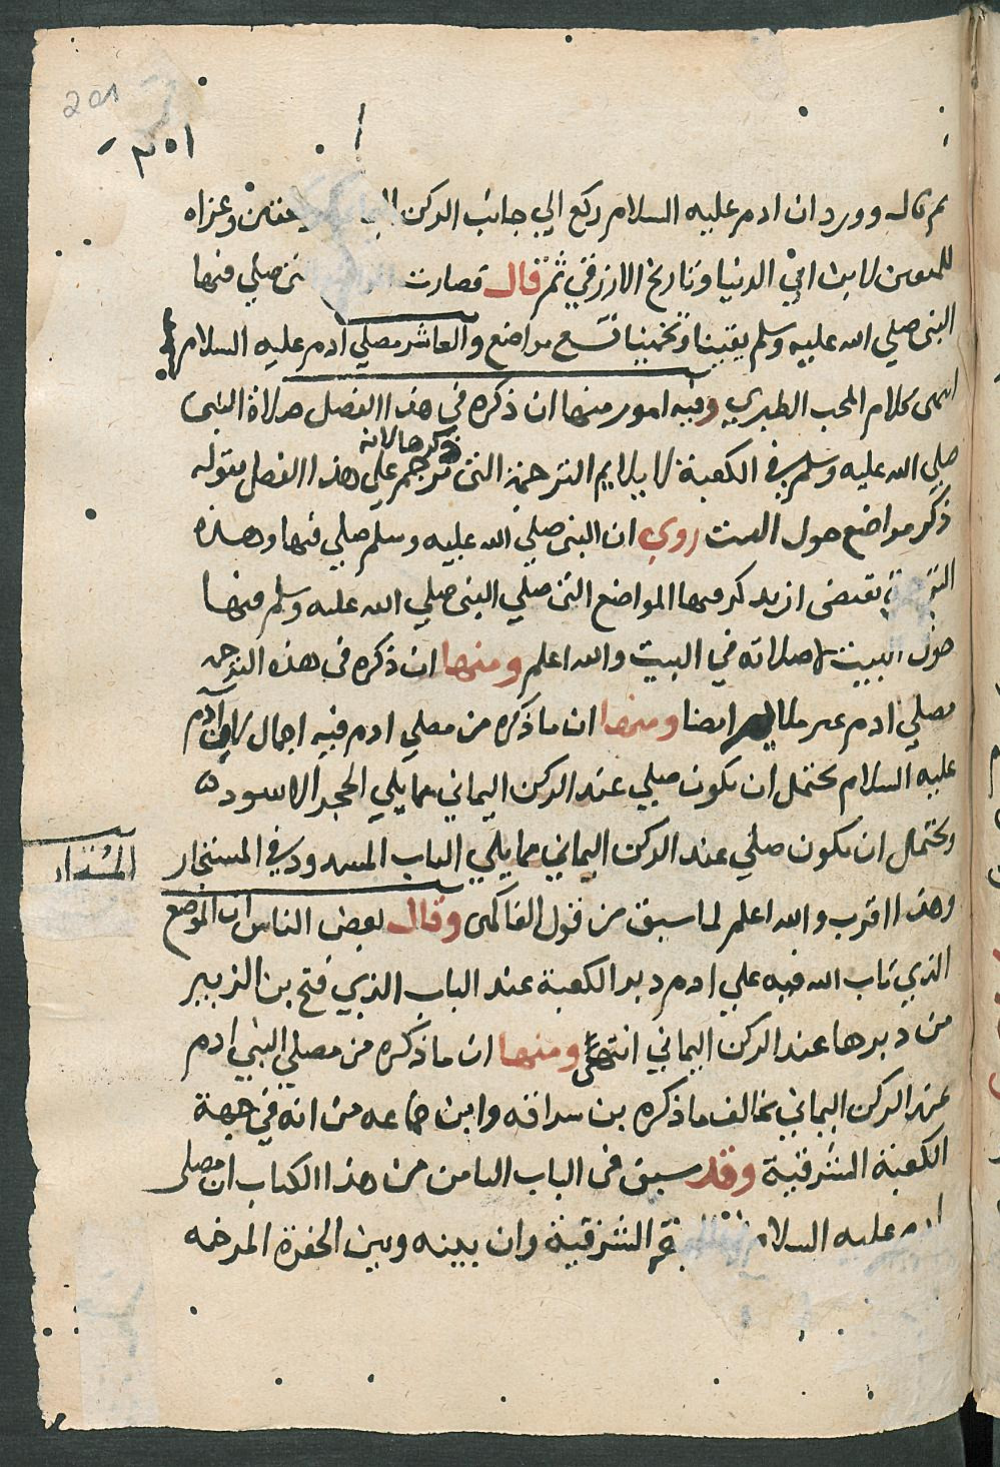 201
٢٠١
ثم قال وورد ان ادم عليه السلام ركع الي جانب الركن وعزاه
لابن ابي الدنيا وتاريخ الازرقي ثم قال فصارت صلي فيها
النبي صلي الله عليه وسلم يقينا وتخمينا تسع مواضع والعاشر مصلي ادم عليه السلام
انتهى كلام المحب الطبري وفيه امور منها ان ذكره في هذا الفصل صلاة النبي
صلي الله عليه وسلم في الكعبة لا يلايم الترجمة التي ذكرها لانه ترجم علي هذا الفصل بقوله
ذكر مواضع حول البيت روي ان النبي صلي الله عليه وسلم صلي فيها وهذه
يقتضي ان يذكر فيها المواضع التي صلي النبي صلي الله عليه وسلم فيها
حول البيت لا صلاته في البيت والله اعلم ومنها ان ذكره في هذه الترجمه
مصلي ادم ايضا ومنها ان ما ذكره من مصلي ادم فيه اجمال لان آدم
عليه السلام يحتمل ان يكون صلي عند الركن اليماني مما يلي الحجر الاسود
ويحتمل ان يكون صلي عند الركن اليماني مما يلي الباب المسدود في المستجار
المستجار
وهذا اقرب والله اعلم لما سبق من قول الفاكهى وقال بعض الناس ان الموضع
الذي تاب الله فيه علي ادم دبر الكعبة عند الباب الذي فتح بن الزبير
من دبرها عند الركن اليماني انتهى ومنها ان ما ذكره من مصلي النبي ادم
عند الركن اليماني يخالف ما ذكره بن سراقه وابن جماعه من انه في جهة
الكعبة الشرقية وقد سبق في الباب الثامن من هذا الكتاب ان مصلى
ادم عليه السلام الشرقية وان بينه وبين الحفرة المرخمه